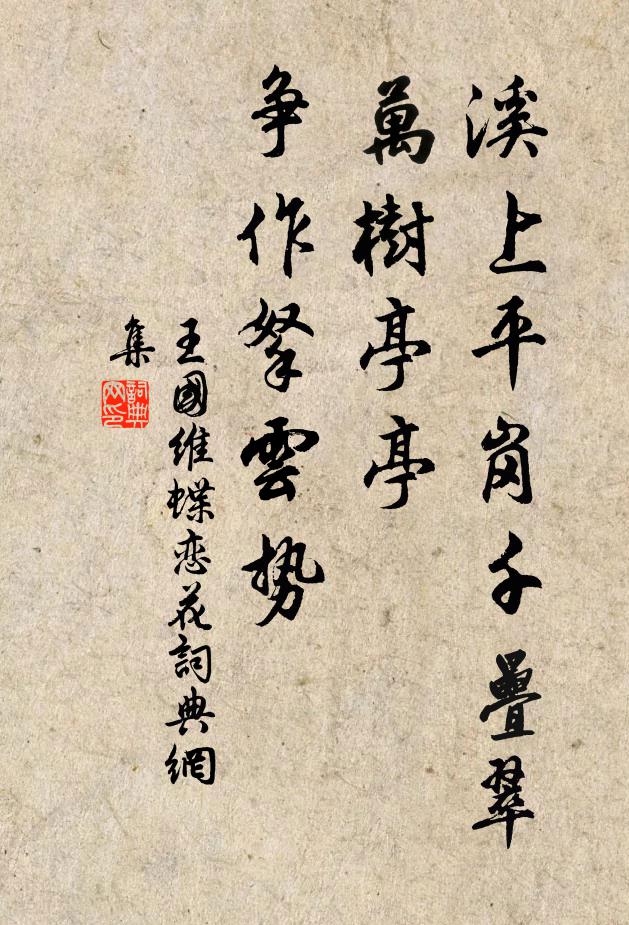 溪上平崗千疊翠
萬樹亭亭
争作拏雲勢
王國維蝶恋花詞典網
集
詞典網印